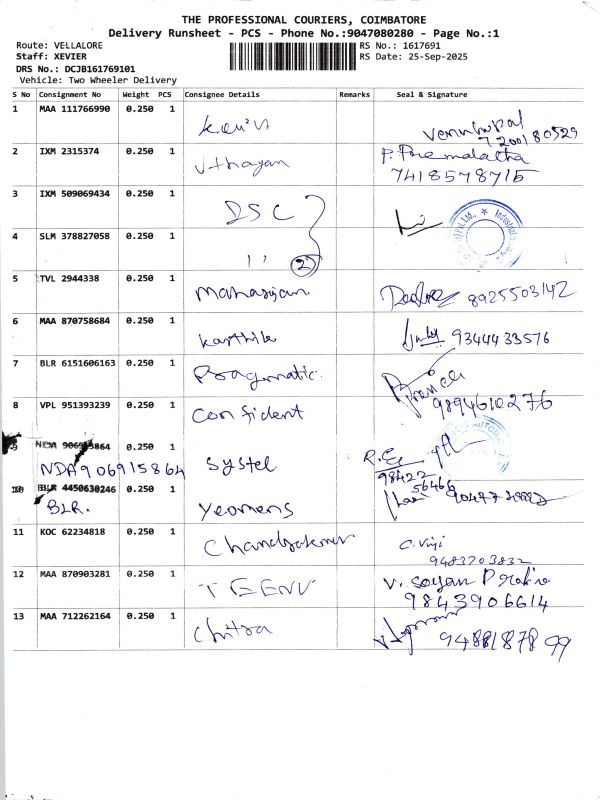 THE PROFESSIONAL COURIERS, COIMBATORE
Delivery Runsheet - PCS - Phone No.:9047080280 - Page No.:1
Route: VELLALORE
Staff: XEVIER
DRS No.: DCJB161769101
Vehicle: Two Wheeler Delivery
RS No.: 1617691
RS Date: 25-Sep-2025
S No Consignment No Weight PCS Consignee Details Remarks Seal & Signature
1 MAA 111766990 0.250 1 Kavin
7200180529
2 IXM 2315374 0.250 1 Uthayan P. Premalatha
7418578715
3 IXM 509069434 0.250 1 DSC
4 SLM 378827058 0.250 1 " 2
5 TVL 2944338 0.250 1 8925503142
6 MAA 870758684 0.250 1 Karthik 9344433576
7 BLR 6151606163 0.250 1 Pragmatic.
9894610276
8 VPL 951393239 0.250 1 Confident
9 0.250 1 Systel
NDA906915864
98422
56466
10 BLR 4450630246 0.250 1 Yeomens
BLR.
11 KOC 62234818 0.250 1 C. Viji
9483703832
12 MAA 870903281 0.250 1 TEENV
9843906614
13 MAA 712262164 0.250 1 Chitra 9488187899